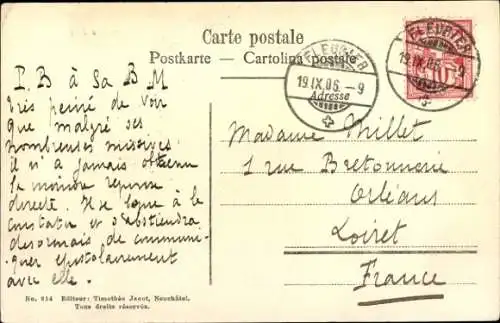 Carte postale
Postkarte — Cartolina postale
FLEURIER
19.IX.06.–9
Adresse
FLEURIER
19.IX.06.–9
10
P. B à Sa B M
Très peiné de voir
que malgré ses
nombreuses missives
il n'a jamais obtenu
la moindre reponse
directe. Il se borne à le
constater et s'abstiendra
desormais de communi-
quer epistolairement
avec elle.
Madame Millet
1 rue Bretonnerie
Orléans
Loiret
France
No. 814 Editeur: Timothée Jacot, Neuchâtel.
Tous droits réservés.